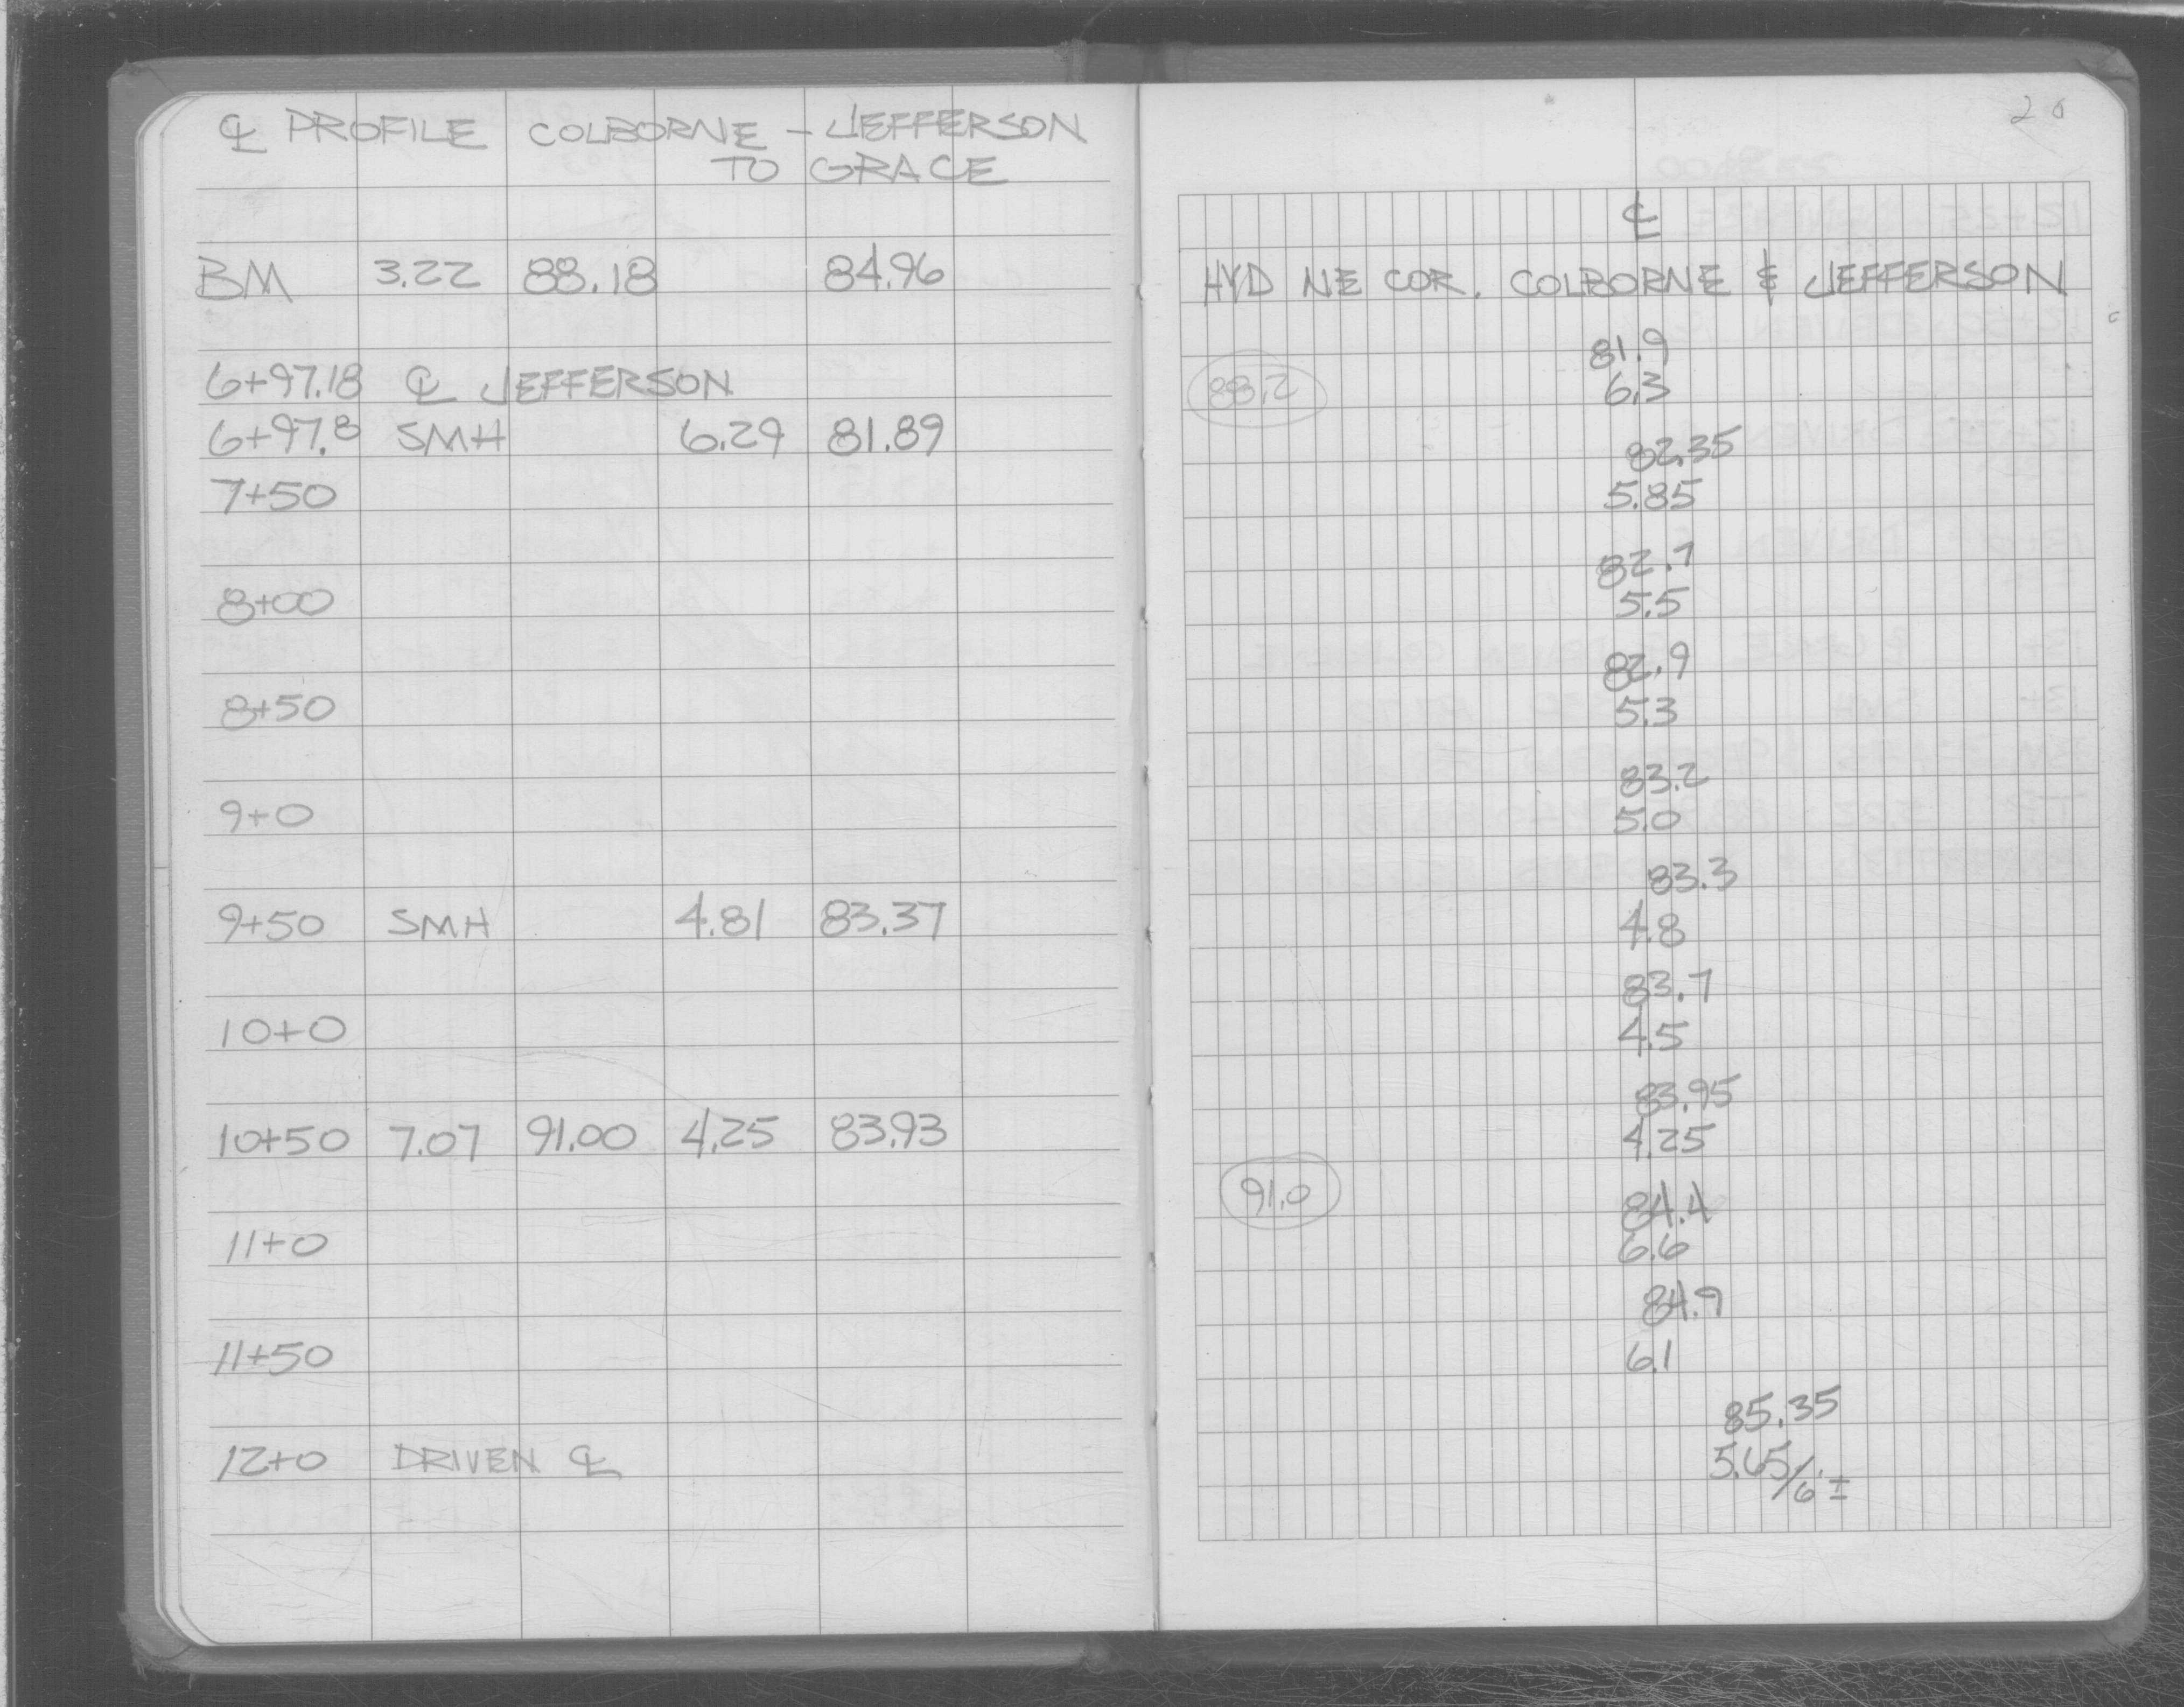 ℄ PROFILE COLBORNE - JEFFERSON
TO GRACE
BM 3.22 88.18 84.96
6+97.18 ℄ JEFFERSON
6+97.8 SMH 6.29 81.89
7+50
8+00
8+50
9+0
9+50 SMH 4.81 83.37
10+0
10+50 7.07 91.00 4.25 83.93
11+0
11+50
12+0 DRIVEN ℄
20
℄
HYD NE COR. COLBORNE & JEFFERSON
81.9
88.2 6.3
82.35
5.85
82.7
5.5
82.9
5.3
83.2
5.0
83.3
4.8
83.7
4.5
83.95
4.25
91.0 84.4
6.6
84.9
6.1
85.35
5.65/6'±